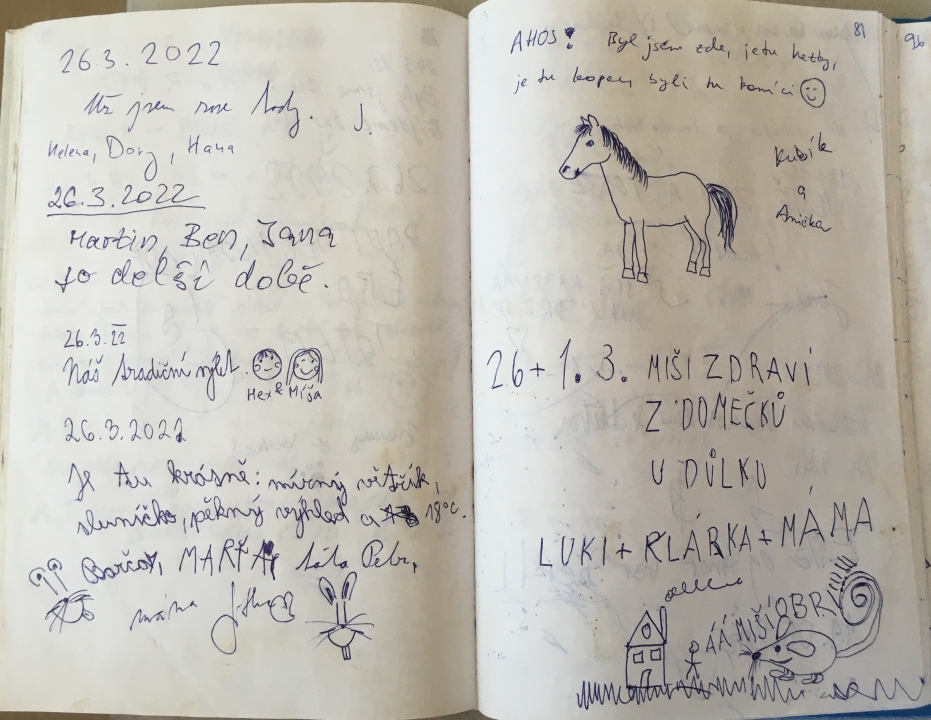 26.3.2022
Už jsem zase tady.
Helena, Dory, Hana
26.3.2022
Martin, Ben, Jana
po delší době.
26.3.22
Náš tradiční výlet.
Hex & Míša
26.3.2022
Je tu krásně: mírný větřík,
sluníčko, pěkný výhled a 18°C.
Barča, MARŤA, táta Petr,
máma
81
AHOJ! Byl jsem zde, je tu hezky,
je tu kopec, byli tu koníci
Kubík
a
Anička
26+1.3. MIŠI ZDRAVÍ
Z DOMEČKŮ
U DŮLKU
LUKI + KLÁRKA + MÁMA
ÁÁ MIŠÍ OBR